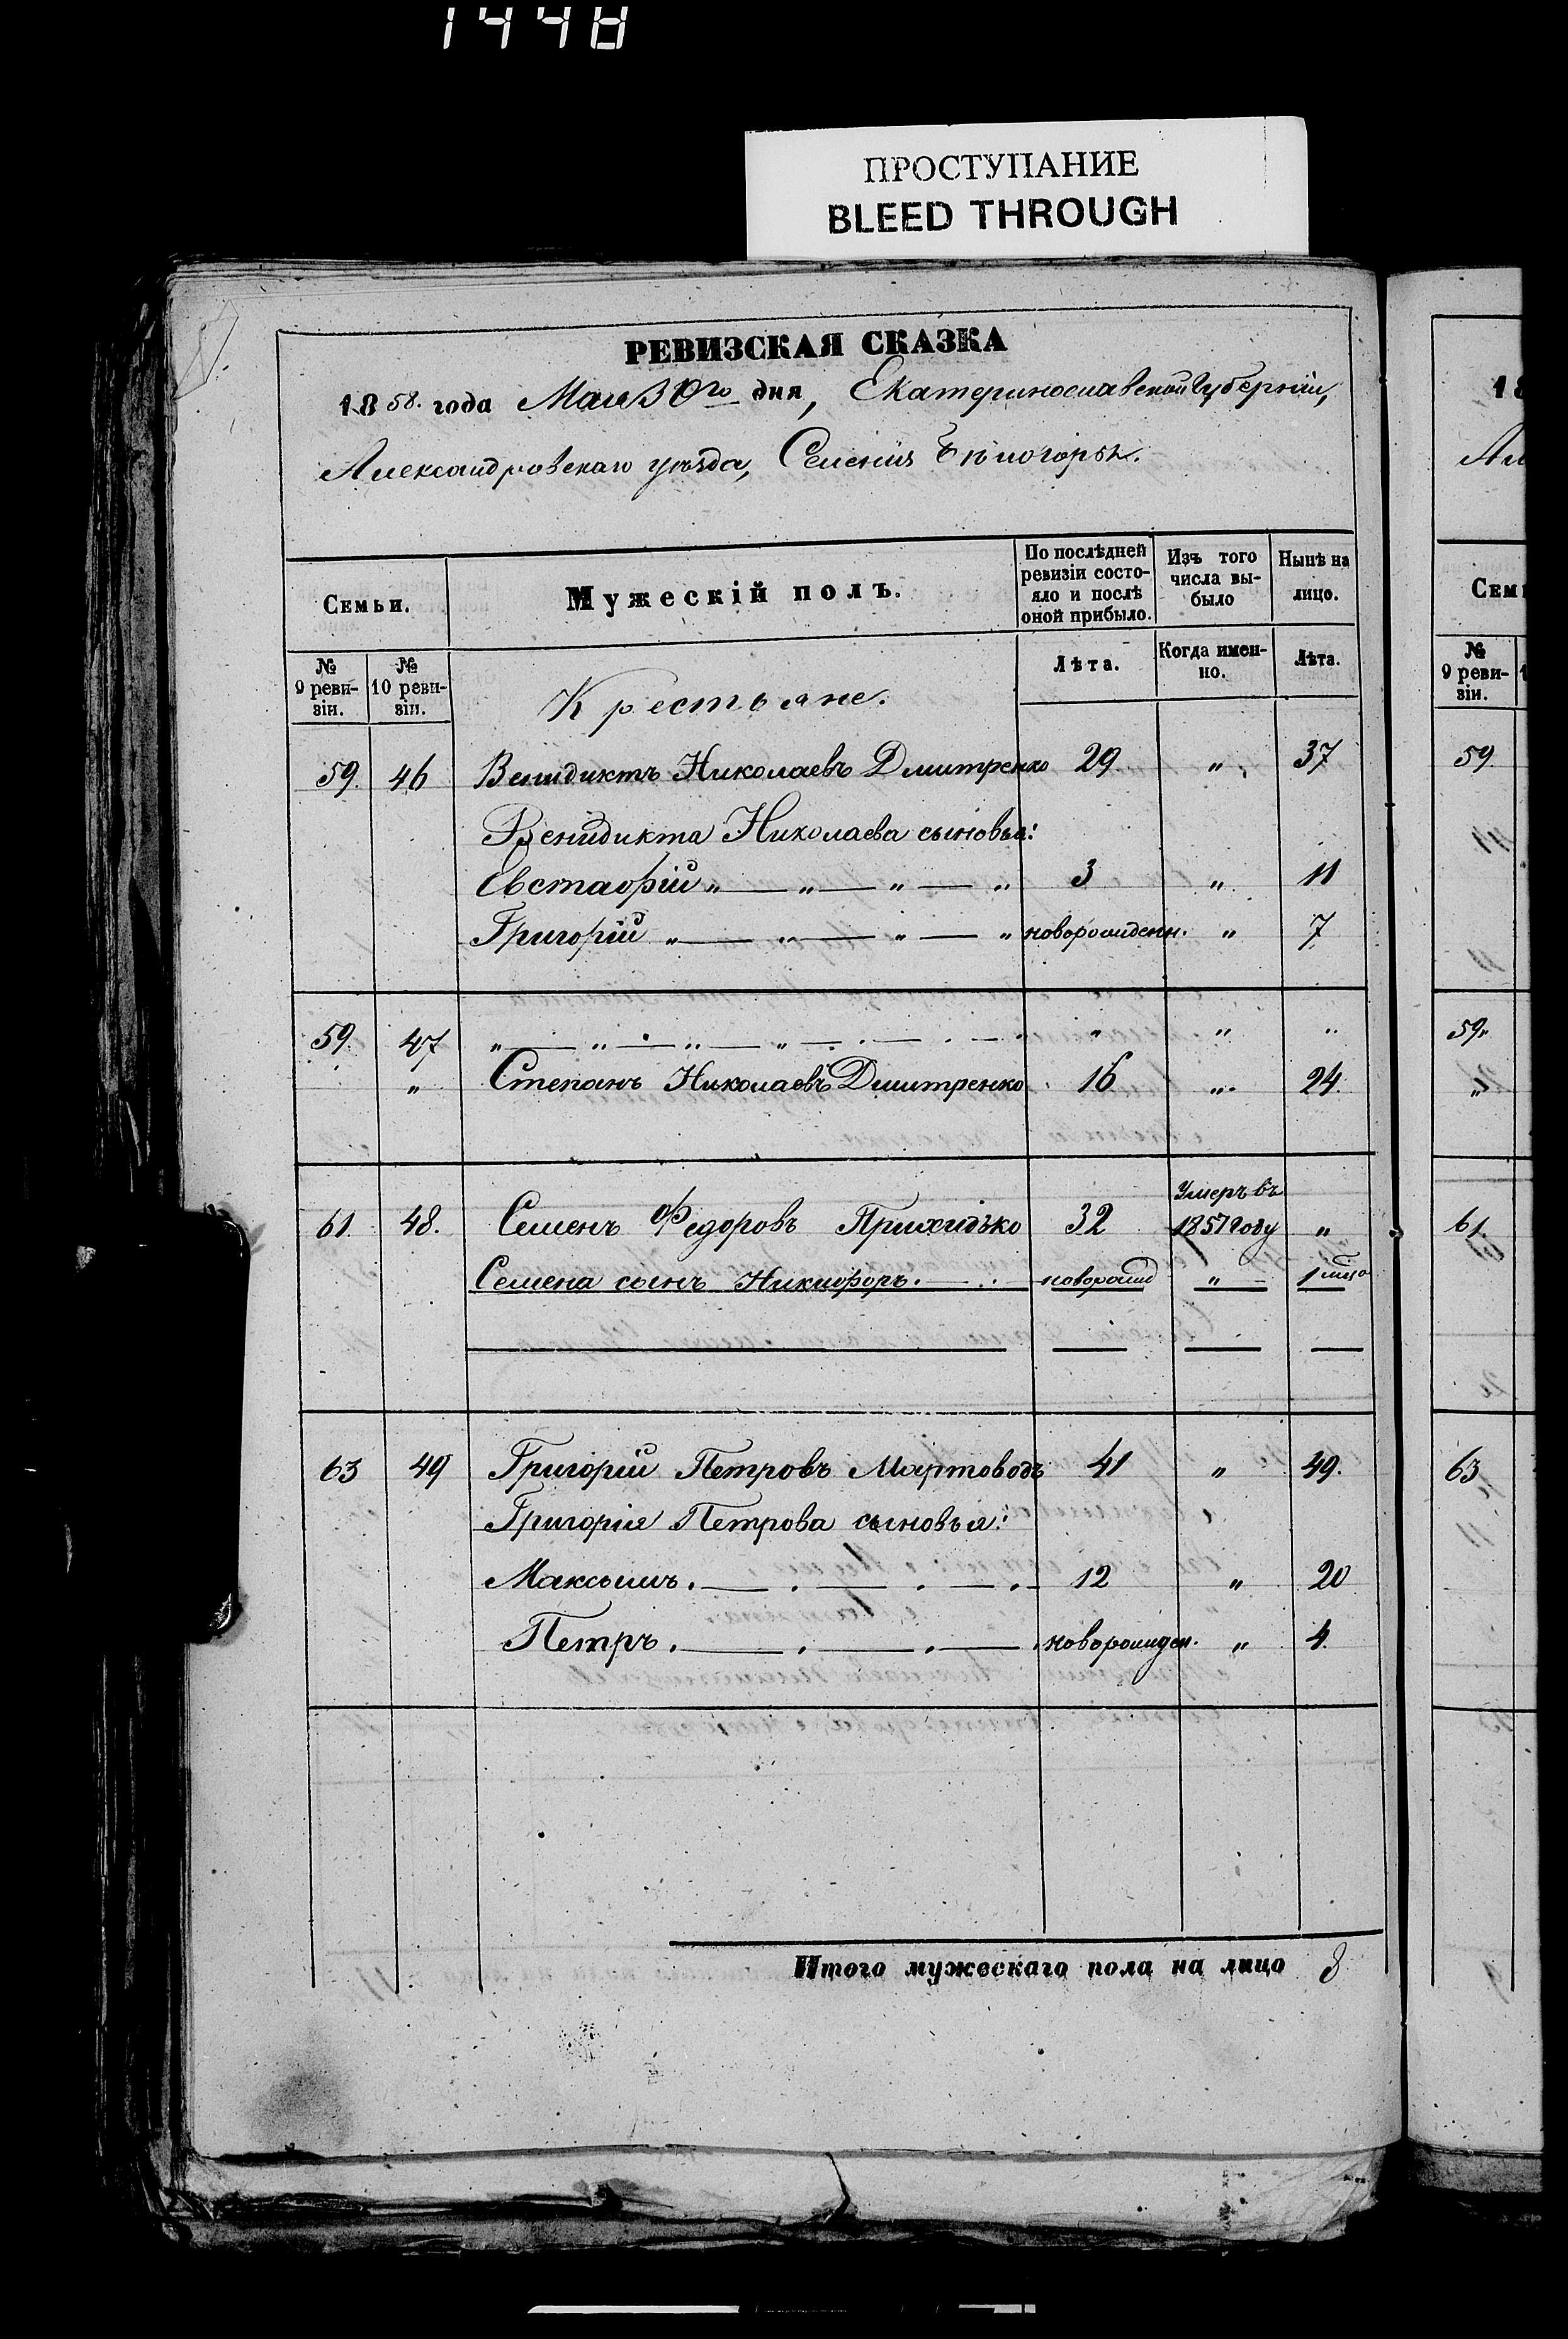 1448
ПРОСТУПАНИЕ
BLEED THROUGH
РЕВИЗСКАЯ СКАЗКА
1858. года Мая 30го дня, Екатеринославской Губерніи,
Александровскаго уезда, Селенія Бѣлогорья.
Семьи.
Мужескій полъ.
По послѣдней ревизіи состояло и послѣ оной прибыло.
Изъ того числа выбыло
Ныне на лицо.
№ 9 ревизіи.
№ 10 ревизіи.
Лѣта.
Когда именно.
Лѣта.
Крестьяне.
59. 46 Венидиктъ Николаевъ Дмитренко 29 " 37
Венидикта Николаева сыновья:
Евстафій " — " — " — " 3 " 11
Григорій " — " — " — " новорожденн. " 7
59. 47 " — " — " — " — . — . — " " " "
" Степанъ Николаевъ Дмитренко 16 " 24
61 48. Семенъ Федоровъ Прихидько 32 Умеръ въ 1857 году "
Семена сынъ Никифоръ. — . . новорожд " 1 мѣся
63 49 Григорій Петровъ Мартоводъ 41 " 49.
Григорія Петрова сыновья:
Максимъ. — . — . — . 12 " 20
Петръ. — . — . — . новорожден. " 4
Итого мужескаго пола на лицо 8
18
Ал
Сем
№ 9 ревизіи.
59
59.
"
61.
63